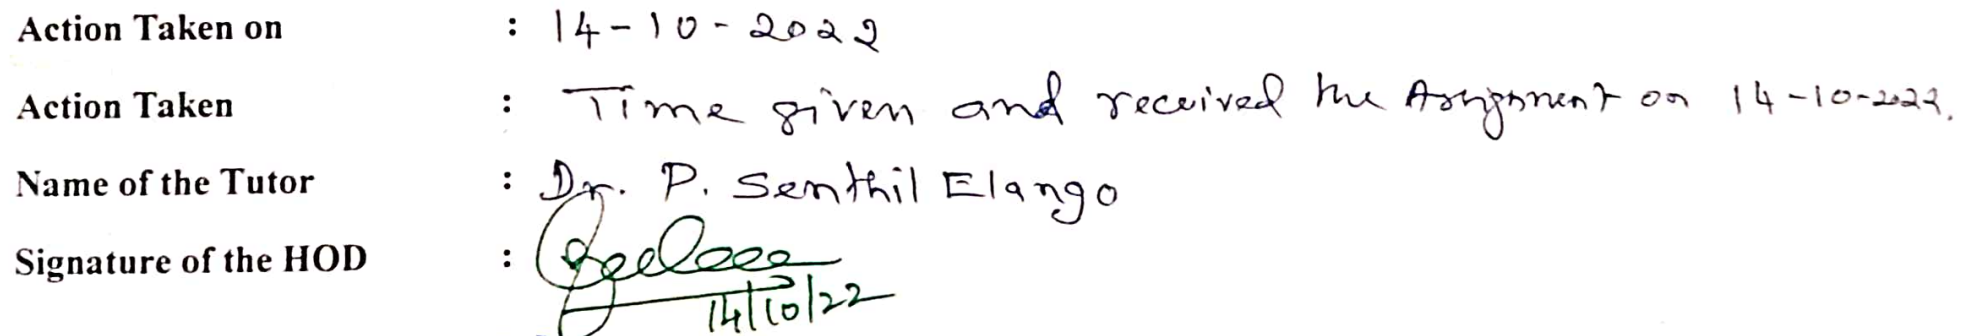 Action Taken on : 14-10-2022
Action Taken : Time given and received the Assignment on 14-10-2022.
Name of the Tutor : Dr. P. Senthil Elango
Signature of the HOD :
14/10/22